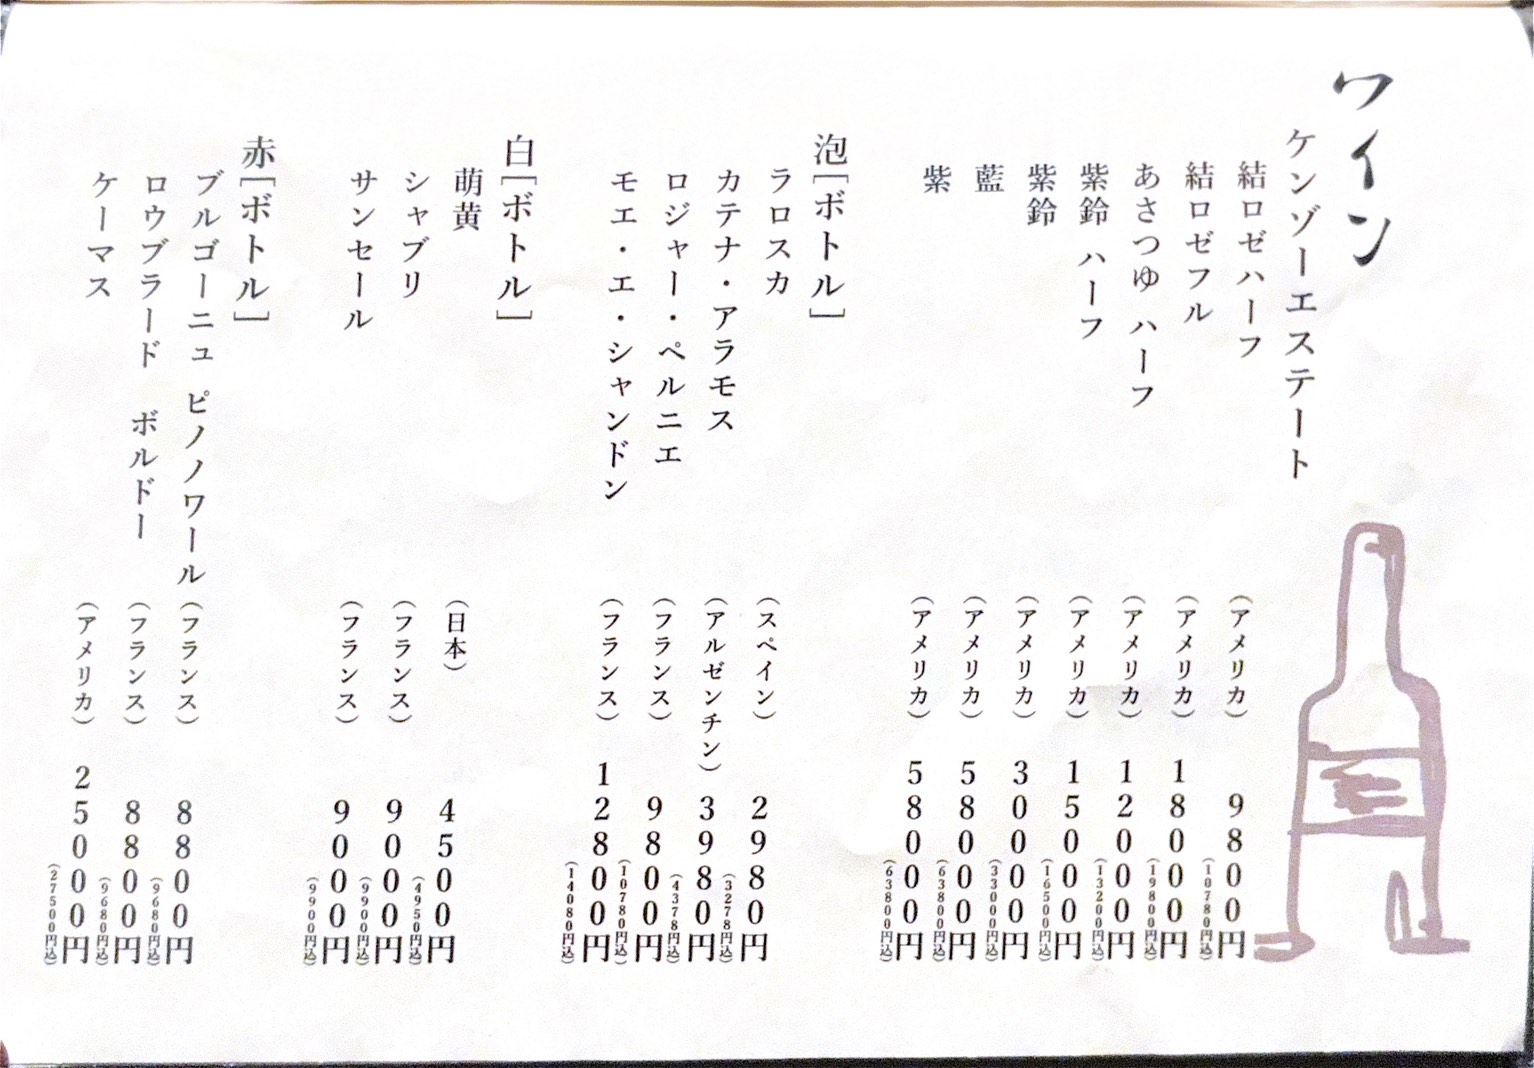 ワイン
ケンゾーエステート
結ロゼハーフ (アメリカ) 9800円 (10780円込)
結ロゼフル (アメリカ) 18000円 (19800円込)
あさつゆ ハーフ (アメリカ) 12000円 (13200円込)
紫鈴 ハーフ (アメリカ) 15000円 (16500円込)
紫鈴 (アメリカ) 30000円 (33000円込)
藍 (アメリカ) 58000円 (63800円込)
紫 (アメリカ) 58000円 (63800円込)
泡[ボトル]
ラロスカ (スペイン) 2980円 (3278円込)
カテナ・アラモス (アルゼンチン) 3980円 (4378円込)
ロジャー・ペルニエ (フランス) 9800円 (10780円込)
モエ・エ・シャンドン (フランス) 12800円 (14080円込)
白[ボトル]
萌黄 (日本) 4500円 (4950円込)
シャブリ (フランス) 9000円 (9900円込)
サンセール (フランス) 9000円 (9900円込)
赤[ボトル]
ブルゴーニュ ピノノワール (フランス) 8800円 (9680円込)
ロウブラード ボルドー (フランス) 8800円 (9680円込)
ケーマス (アメリカ) 25000円 (27500円込)